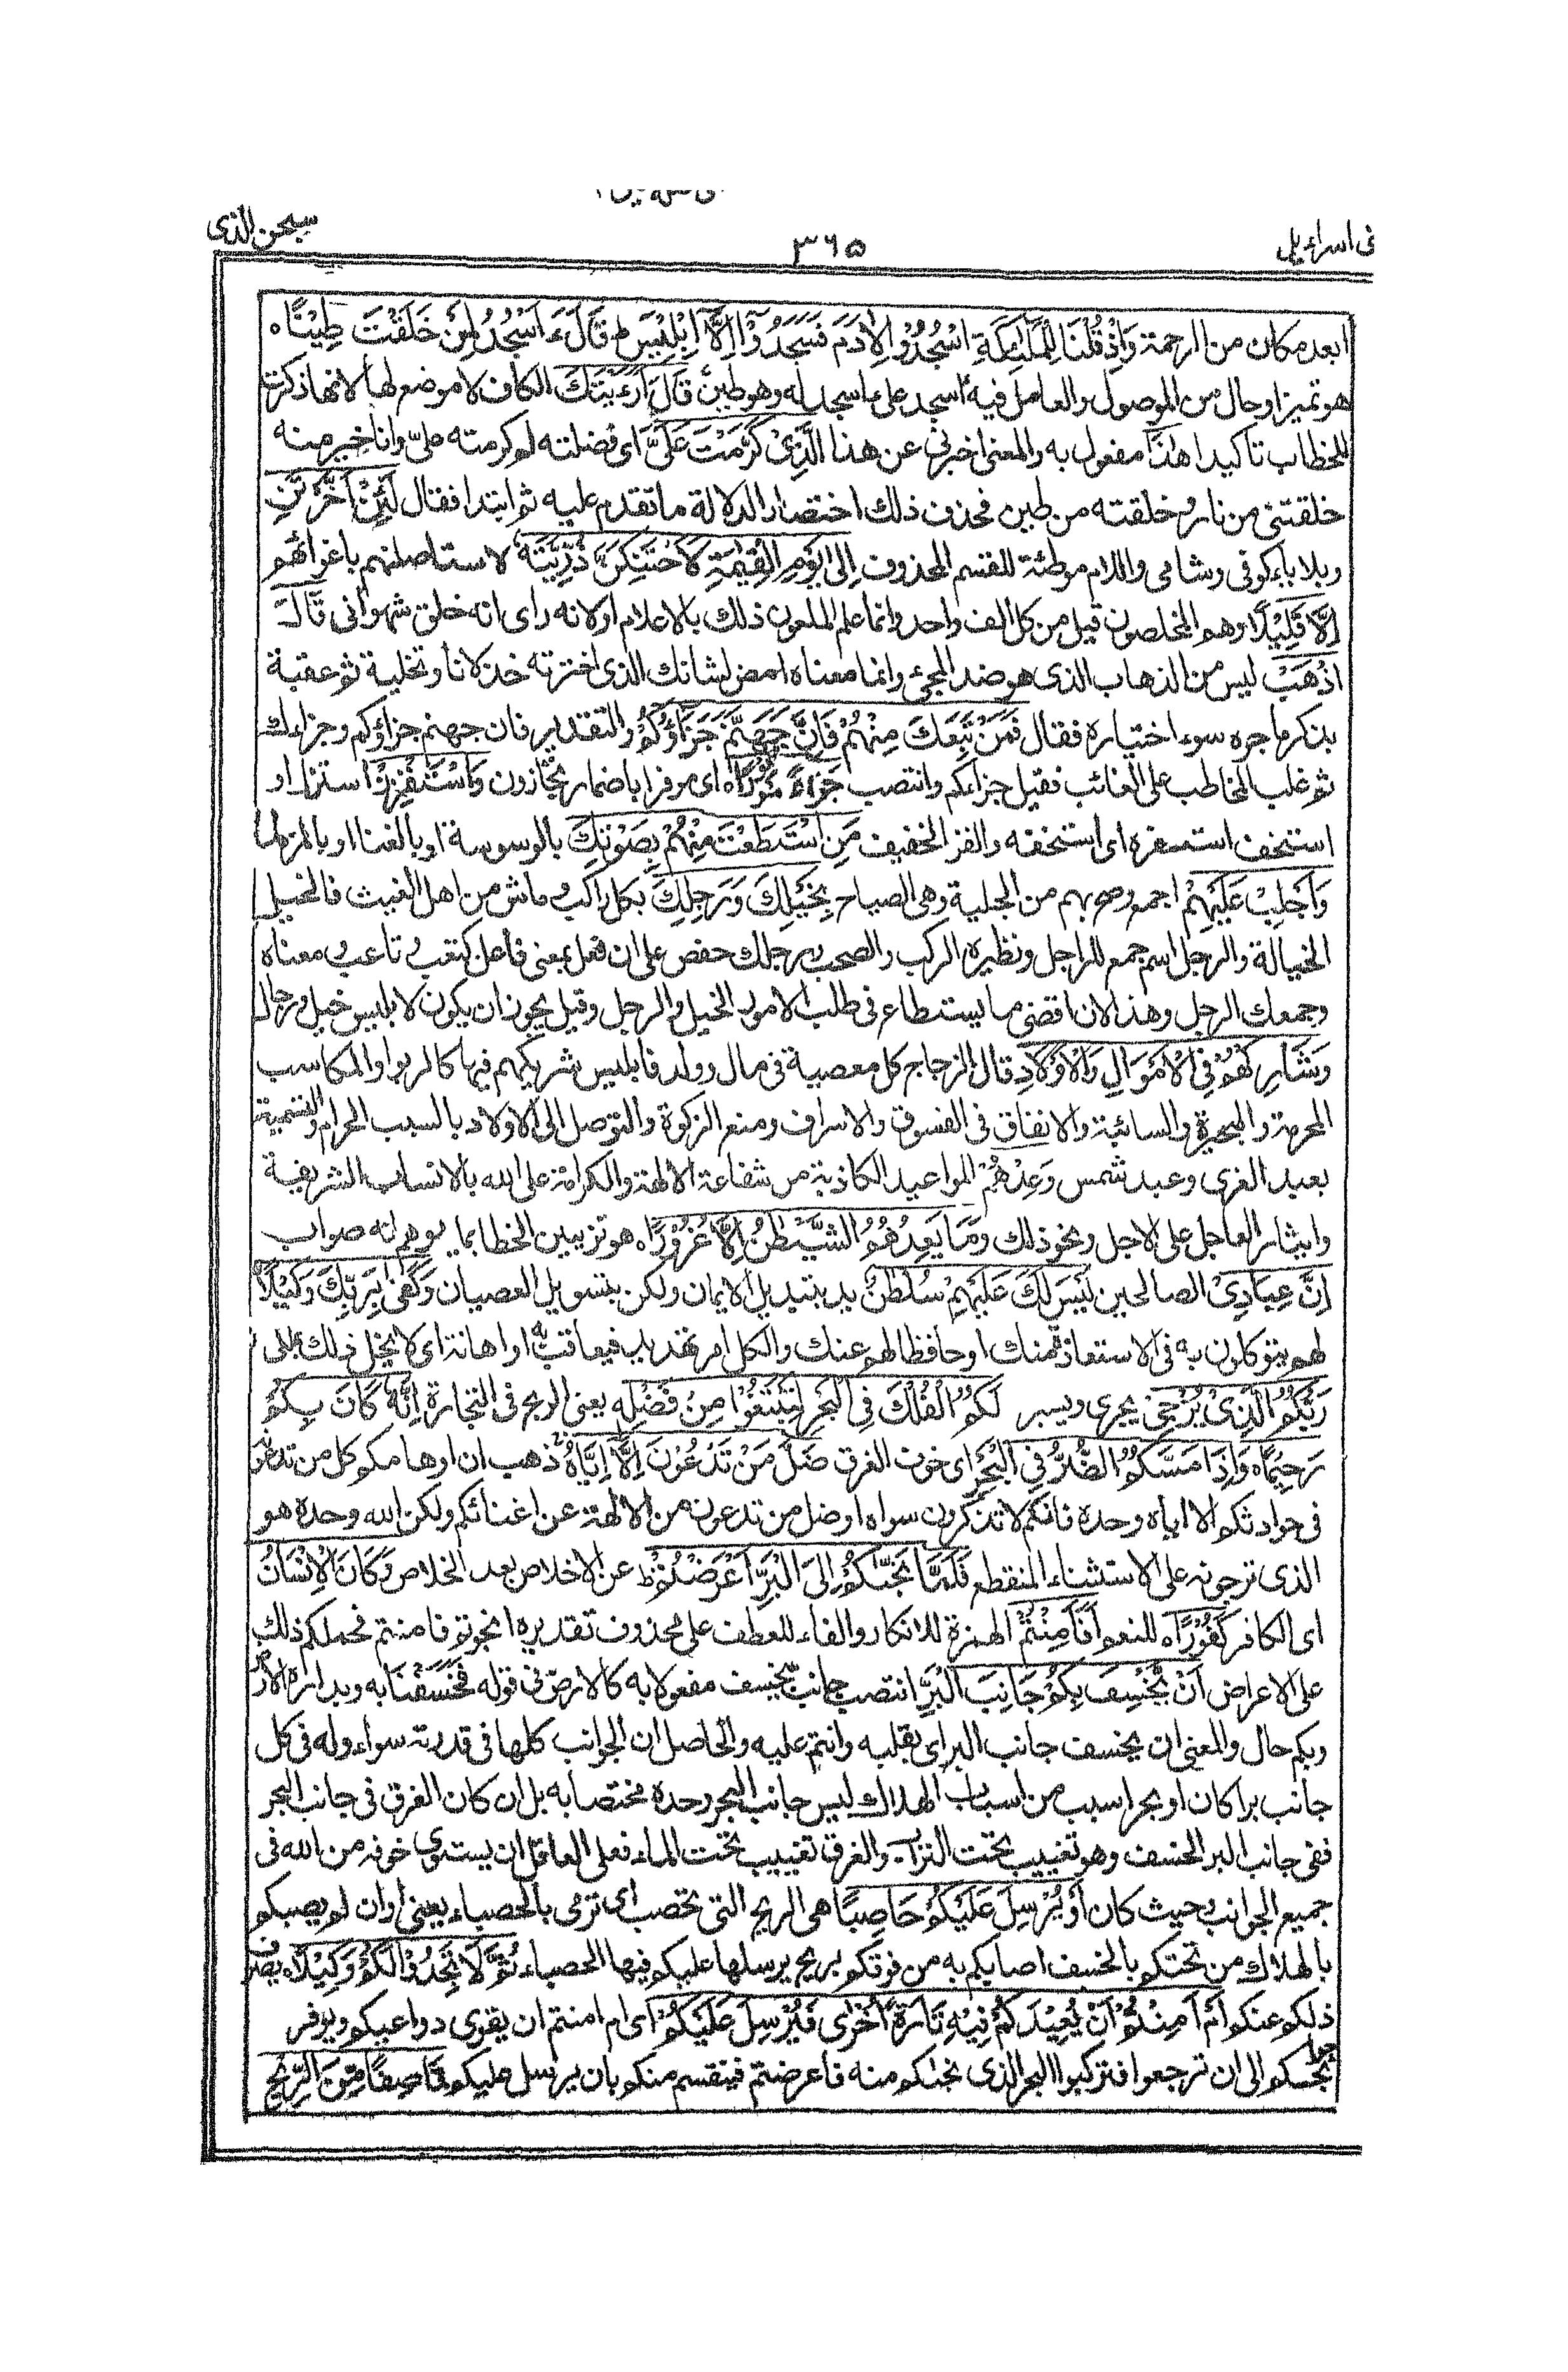 سبحن الذى
٣٦٥
فى اسراءيل
ابعد مكان من الرحمة وَاِذْ قُلْنَا لِلْمَلٰٓئِكَةِ اسْجُدُوْا لِاٰدَمَ فَسَجَدُوْٓا اِلَّآ اِبْلِيْسَ ط قَالَ ءَاَسْجُدُ لِمَنْ خَلَقْتَ طِيْنًا ه
هو تميز او حال من الموصول والعامل فيه ءاسجد على ءاسجد له وهو طين قَالَ اَرَءَيْتَكَ الكاف لا موضع لها لانها ذكرت
للخطاب تاكيدا هٰذَا مفعول به والمعنى اخبرنى عن هذا الَّذِىْ كَرَّمْتَ عَلَىَّ اى فضلته لم كرمته علىّ وانا خير منه
خلقتنى من نار و خلقته من طين فحذف ذلك اختصارا لدلالة ما تقدم عليه ثم ابتدا فقال لَئِنْ اَخَّرْتَنِ
وبلا ياء كوفى وشامى واللام موطئة للقسم المحذوف اِلٰى يَوْمِ الْقِيٰمَةِ لَاَحْتَنِكَنَّ ذُرِّيَّتَهٗٓ لاستاصلنهم باغوائهم
اِلَّا قَلِيْلًا وهم المخلصون قيل من كل الف واحد وانما علم الملعون ذلك بالاعلام او لانه راى انه خلق شهوانى قَالَ
اذْهَبْ ليس من الذهاب الذى هو ضد المجىء وانما معناه امض لشانك الذى اخترته خذلانا وتخلية ثم عقبة
بذكر ما جره سوء اختياره فقال فَمَنْ تَبِعَكَ مِنْهُمْ فَاِنَّ جَهَنَّمَ جَزَآؤُكُمْ والتقدير فان جهنم جزاؤكم وجزاءك
ثم غلب المخاطب على الغائب فقيل جزاءكم وانتصب جَزَآءً مَّوْفُوْرًا ه اى موفرا باضمار تجازون وَاسْتَفْزِزْ استزل او
استخف استفزه اى استخفه والفز الخفيف مَنِ اسْتَطَعْتَ مِنْهُمْ بِصَوْتِكَ بالوسوسة او بالغنا او بالمزمار
وَاَجْلِبْ عَلَيْهِمْ اجمع وصح بهم من الجلبة وهى الصياح بِخَيْلِكَ وَرَجِلِكَ بكل راكب و ماش من اهل العيث فالخيل
الخيالة والرجل اسم جمع للراجل ونظيره الركب والصحب ورجلك حفص على ان فعل بمعنى فاعل كتعب و تاعب و معناه
وجمعك الرجل وهذا لان اقصى ما يستطاع فى طلب الامور الخيل والرجل وقيل يجوز ان يكون لابليس خيل و رجال
وَشَارِكْهُمْ فِى الْاَمْوَالِ وَالْاَوْلَادِ قال الزجاج كل معصية فى مال وولد فابليس شريكهم فيها كالربوا والمكاسب
المحرمة والبحيرة والسائبة والانفاق فى الفسوق والاسراف ومنع الزكوة والتوصل الى الاولاد بالسبب الحرام والتسمية
بعبد العزى وعبد شمس وَعِدْهُمْ المواعيد الكاذبة من شفاعة الالهة والكرامة على الله بالانساب الشريفة
وايثار العاجل على الاجل ونحو ذلك وَمَا يَعِدُهُمُ الشَّيْطٰنُ اِلَّا غُرُوْرًا ه هو تزيين الخطا بما يوهم انه صواب
اِنَّ عِبَادِىْ الصالحين لَيْسَ لَكَ عَلَيْهِمْ سُلْطٰنٌ يد بتبديل الايمان ولكن بتسويل العصيان وَكَفٰى بِرَبِّكَ وَكِيْلًا
لهم يتوكلون به فى الاستعاذة منك او حافظا لهم عنك والكل امر تهديد فيعاقب به او اهانة اى لا يخل ذلك بملكى
رَبُّكُمُ الَّذِىْ يُزْجِىْ يجرى ويسير لَكُمُ الْفُلْكَ فِى الْبَحْرِ لِتَبْتَغُوْا مِنْ فَضْلِهٖ يعنى الربح فى التجارة اِنَّهٗ كَانَ بِكُمْ
رَحِيْمًا ه وَاِذَا مَسَّكُمُ الضُّرُّ فِى الْبَحْرِ اى خوف الغرق ضَلَّ مَنْ تَدْعُوْنَ اِلَّآ اِيَّاهُ ذهب عن اوهامكم كل من تدعون
فى حوادثكم الا اياه وحده فانكم لا تذكرون سواه او ضل من تدعون من الالهة عن اغنائكم ولكن الله وحده هو
الذى ترجونه على الاستثناء المنقطع فَلَمَّا نَجّٰكُمْ اِلَى الْبَرِّ اَعْرَضْتُمْ ط عن الاخلاص بعد الخلاص وَكَانَ الْاِنْسَانُ
اى الكافر كَفُوْرًا ه للنعم اَفَاَمِنْتُمْ الهمزة للانكار والفاء للعطف على محذوف تقديره انجوتم فامنتم فحملكم ذلك
على الاعراض اَنْ يَّخْسِفَ بِكُمْ جَانِبَ الْبَرِّ انتصب جانب بيخسف مفعولا به كالارض فى قوله فَخَسَفْنَا به وبداره الارض
وبكم حال والمعنى ان يخسف جانب البر اى يقلبه وانتم عليه والحاصل ان الجوانب كلها فى قدرته سواء وله فى كل
جانب برا كان او بحرا سبب من اسباب الهلاك ليس جانب البحر وحده مختصا به بل ان كان الغرق فى جانب البحر
ففى جانب البر الخسف وهو تغييب تحت التراب والغرق تغييب تحت الماء فعلى العاقل ان يستوى خوفه من الله فى
جميع الجوانب و حيث كان اَوْ يُرْسِلَ عَلَيْكُمْ حَاصِبًا هى الريح التى تحصب اى ترمى بالحصباء يعنى او ان لم يصبكم
بالهلاك من تحتكم بالخسف اصابكم به من فوقكم بريح يرسلها عليكم فيها الحصباء ثُمَّ لَا تَجِدُوْا لَكُمْ وَكِيْلًا ه يصرف
ذلكم عنكم اَمْ اَمِنْتُمْ اَنْ يُّعِيْدَكُمْ فِيْهِ تَارَةً اُخْرٰى فَيُرْسِلَ عَلَيْكُمْ اى ام امنتم ان يقوى دواعيكم ويوفر
حوائجكم الى ان ترجعوا فتركبوا البحر الذى نجٰكم منه فاعرضتم فينتقم منكم بان يرسل عليكم قَاصِفًا مِّنَ الرِّيْحِ